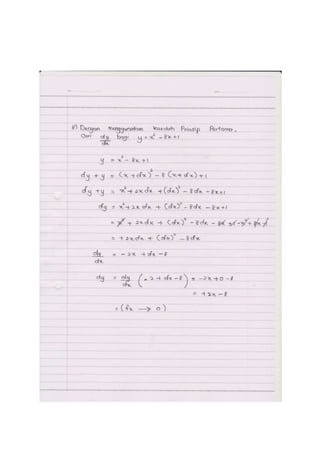 Dengan menggunakan kaedah Prinsip Pertama,
Cari dy/dx bagi y = x² - 8x + 1
y = x² - 8x + 1
dy + y = (x + dx)² - 8(x + dx) + 1
dy + y = x² + 2xdx + (dx)² - 8dx - 8x + 1
dy = x² + 2xdx + (dx)² - 8dx - 8x + 1
= x² + 2xdx + (dx)² - 8dx
= +2xdx + (dx)² - 8dx
dy/dx = -2x + dx - 8
= -2x + 0 - 8
= +2x - 8